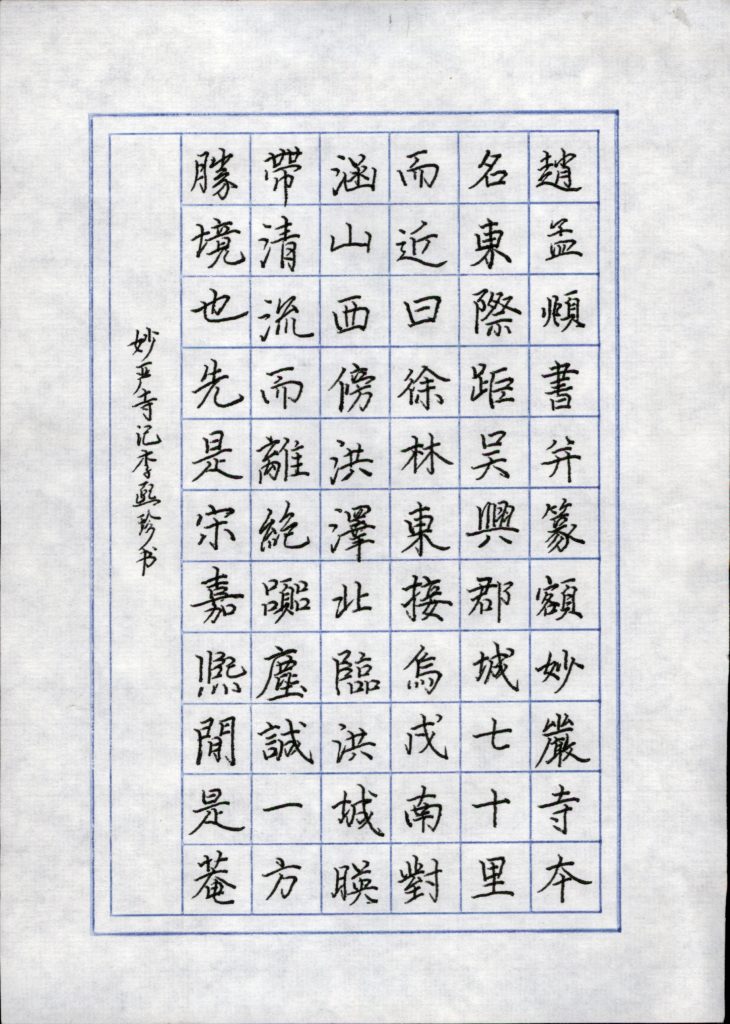 趙孟頫書并篆額妙嚴寺本
名東際距吳興郡城七十里
而近曰徐林東接烏戍南對
涵山西傍洪澤北臨洪城暎
帶清流而離絶囂塵誠一方
勝境也先是宋嘉熙間是菴
妙严寺记李熙珍书